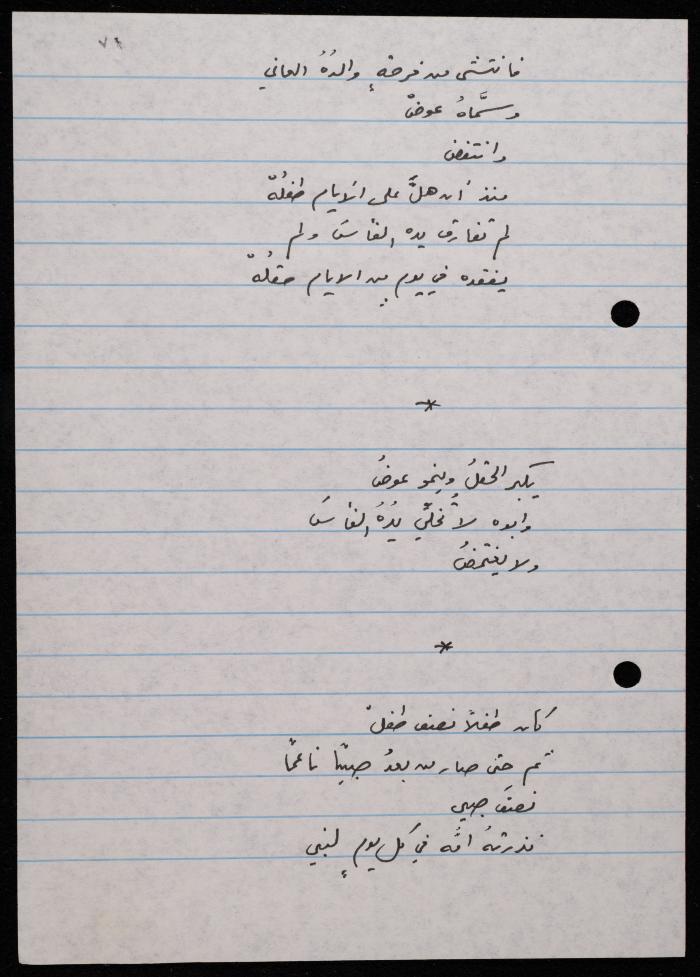 ٧٦
فانتشى من فرحةٍ والدُهُ العاني
وسمَّاهُ عوضْ
وانتفض
منذ أن هلَّ على الايام طفلُهْ
لم تفارق يده الفأسَ ولم
يفقده في يومٍ من الايام حقلُهْ
*
يكبر الحقلُ وينمو عوضُ
وابوه لا تُخلّي يدُهُ الفأسَ
ولا يغتمضُ
*
كان طفلاً نصف طفلْ
ثم حتى صار من بعدُ صبيّا ناعمًا
نصفَ صبي
نذرتهُ امُّه في كل يومٍ لنبي